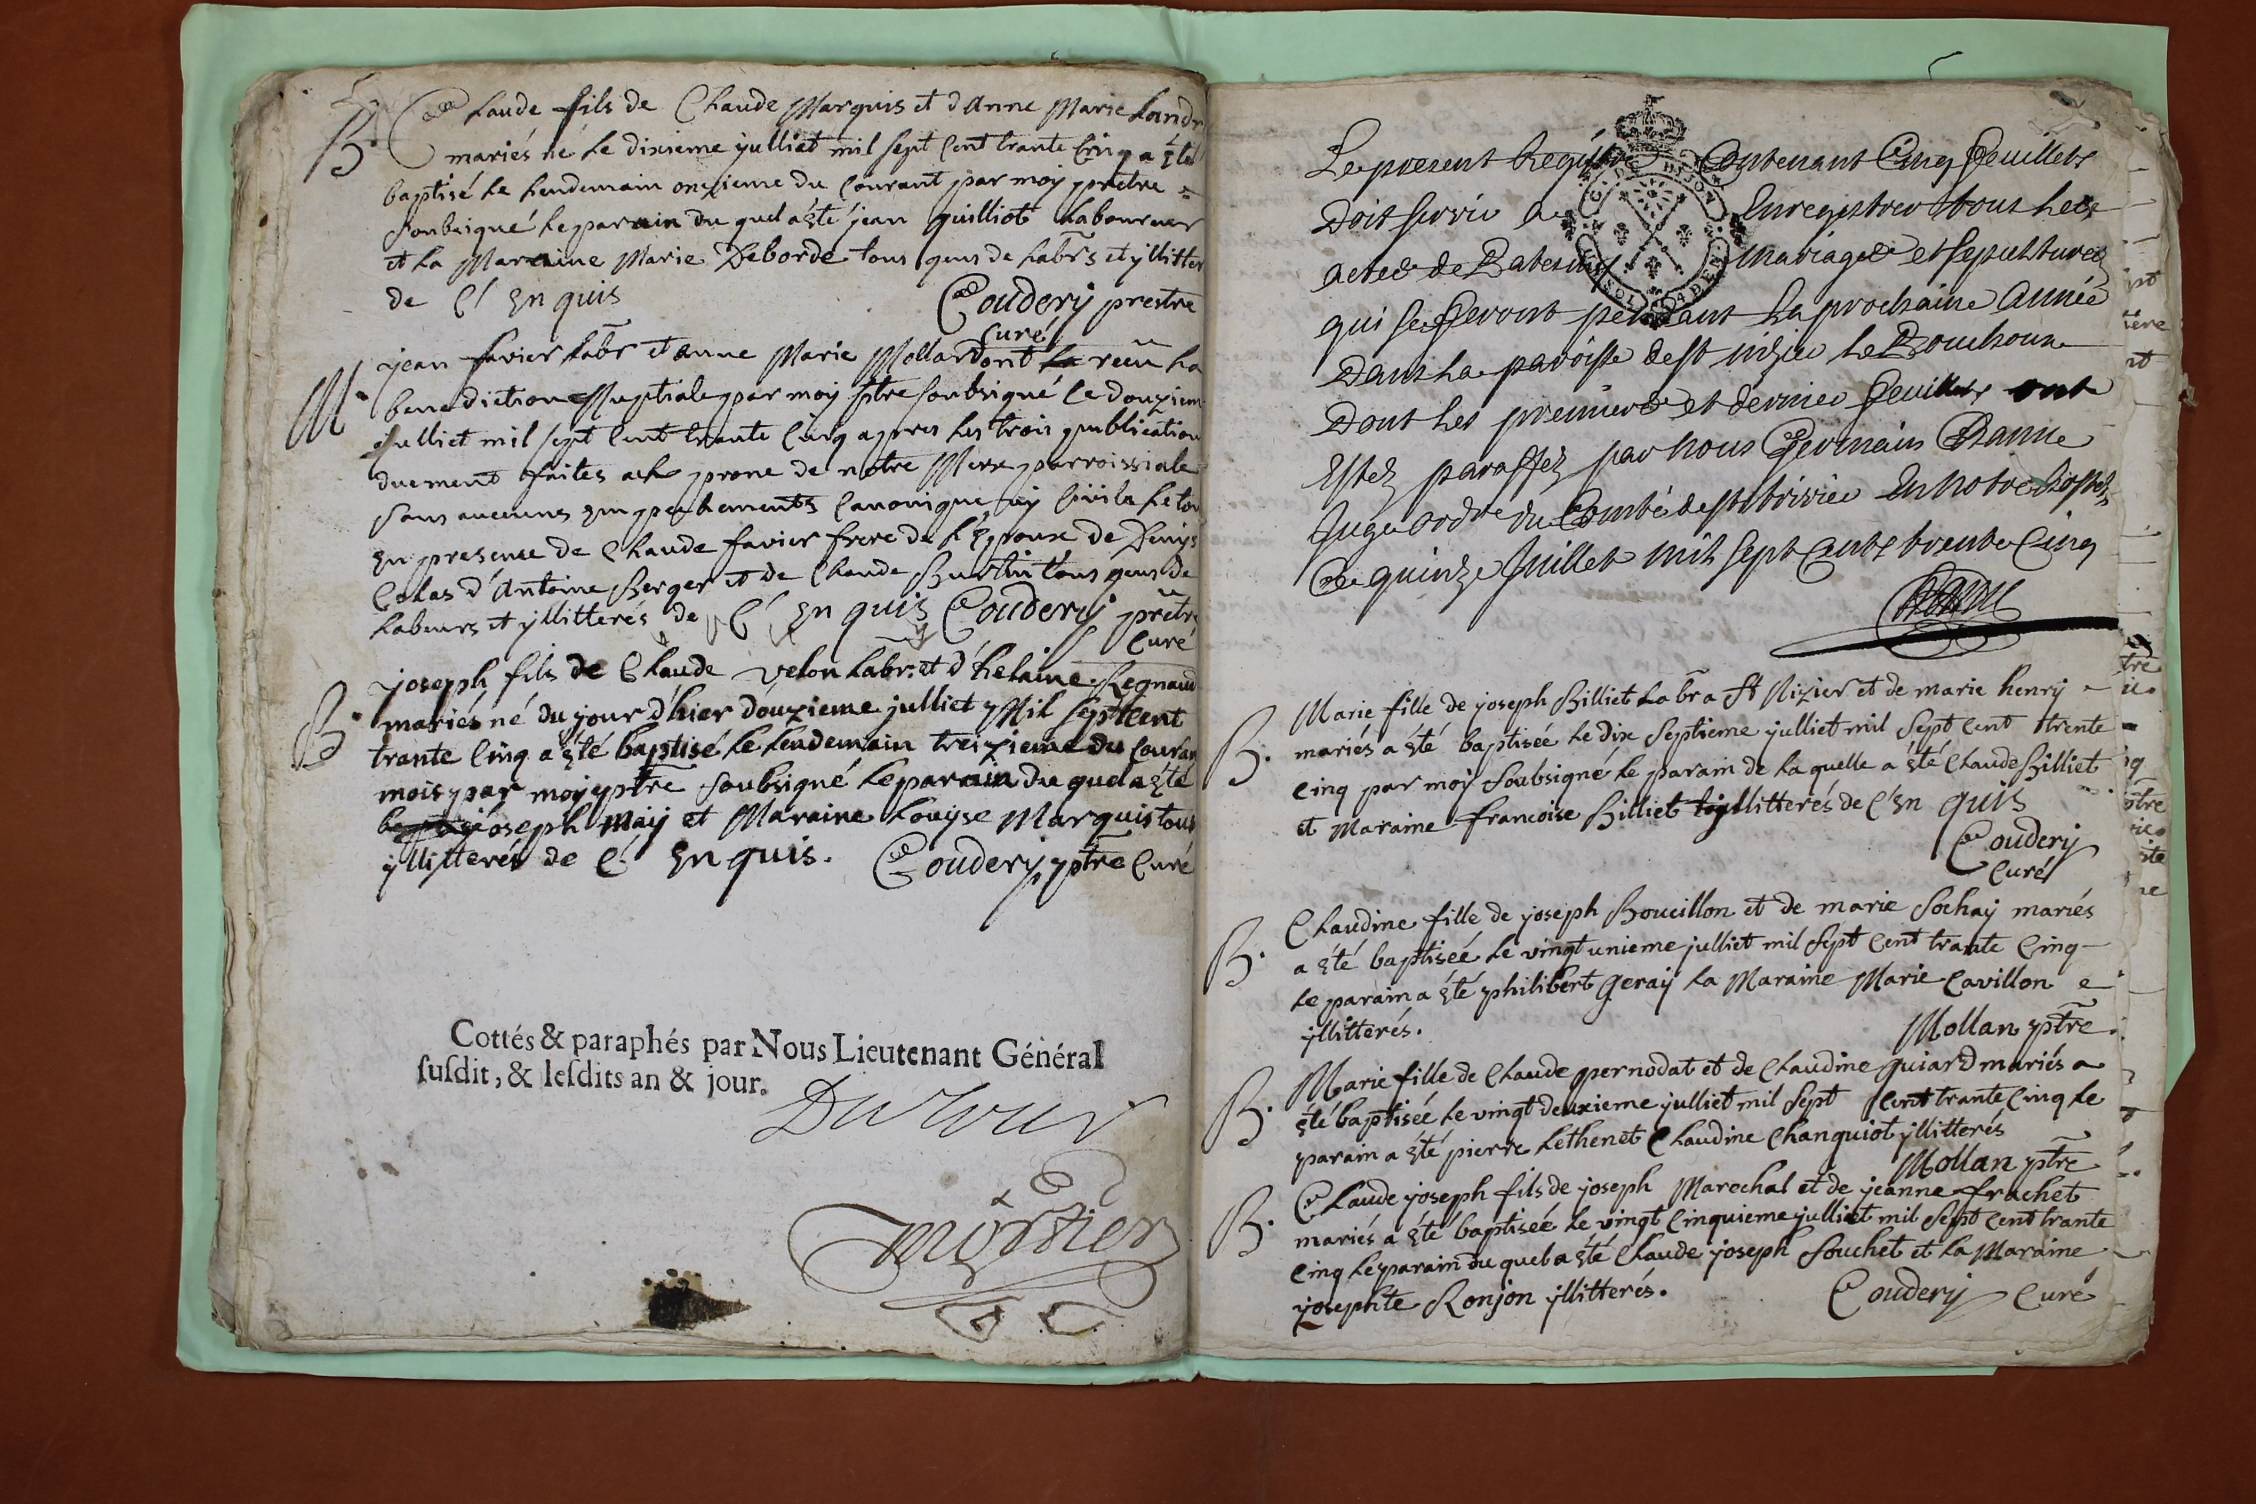 B. Claude fils de Claude Marquis et d'Anne Marie Landr
mariés né le dixieme julliet mil sept cent trante cinq a été
baptisé le lendemain onzieme du courant par moy prêtre
soubsigné le parain du quel a été jean guilliot laboureur
et la Maraine Marie Deborde tous gens de labrs et yllitter
de ce enquis Coudery prestre
curé
M. jean favier labr et anne Marie Mollard ont reçu la
benediction Nuptiale par moy ptre soubsigné le douziem
julliet mil sept cent trante cinq apres les trois publication
duement faites au prone de notre Messe parroissiale
sans aucunes empechements canonique ny civile le tou
en presence de Claude favier frere de l'Epoux de Denys
Colas d'Antoine Berger et de Claude Burtin tous gens de
labeurs et yllitterés de ce enquis Coudery prêtre
curé
B. joseph fils de Claude velon labr. et d'helaine Regnaud
mariés né du jour d'hier douzieme julliet Mil sept cent
trante cinq a été baptisé le lendemain treizieme du couran
mois par moy ptre soubsigné le parain du quel a été
joseph may et Maraine Louyse Marquis tous
yllitterés de ce enquis. Coudery ptre curé
Cottés & paraphés par Nous Lieutenant Général
susdit, & lesdits an & jour.
Le present Registre Contenant Cinq feuillets
Doit servir a Enregistrer tous les
actes de Batesmes Mariages et sepultures
qui se feront pendant La prochaine Année
Dans la paroisse de st nizier le Bouchoux
Dont les premiers et dernier feuillets ont
Estez paraffez par nous Germain
Juge ordre du Comté de st trivier En notre hostel
Ce quinze Juillet mil sept Cents trente Cinq
B. Marie fille de joseph Billiet labr a St Nizier et de marie henry
mariés a été baptisée le dix septieme julliet mil sept cent trente
cinq par moy soubsigné le parain de laquelle a été Claude Billiet
et Maraine francoise Billiet yllitterés de ce enquis
Coudery
curé
B. Claudine fille de joseph Boucillon et de marie Sochay mariés
a été baptisée le vingt unieme julliet mil sept cent trante cinq
le parain a été philibert Geray la Maraine Marie Cavillon
yllitterés. Mollan ptre.
B. Marie fille de Claude pernodat et de Claudine guiard mariés a
été baptisée le vingt deuxieme julliet mil sept cent trante cinq le
parain a été pierre Lethenet Claudine Changuiot yllitterés
Mollan ptre
B. Claude joseph fils de joseph Marechal et de jeanne frachet
mariés a été baptisée le vingt cinquieme julliet mil sept cent trante
cinq le parain du quel a été Claude joseph Souchet et la Maraine
josephte Ronjon yllitterés. Coudery curé